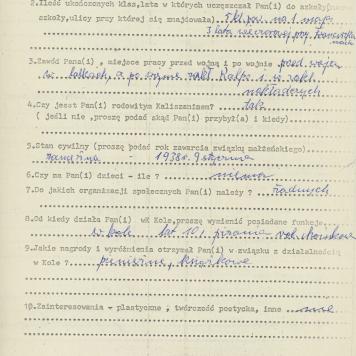 2.Ilość ukończonych klas,lata w których uczęszczał Pan(i) do szkoły(nazwa
szkoły,ulicy przy której się znajdowała) 7 kl. pow. na 1 maja
3 lata wieczorowej przy
3.Zawód Pana(i) , miejsce pracy przed wojną i po wojnie przed wojną
w , a po wojnie zakł. i w zakł.
nakładczych
4.Czy jesst Pan(i) rodowitym Kaliszaninem? tak
( jeśli nie ,proszę podać skąd Pan(i) przybył(a) i kiedy)
5.Stan cywilny (proszę podać rok zawarcia związku małżeńskiego)
zamężna - 1938r. 9 stycznia
6.Czy ma Pan(i) dzieci - ile ?
7.Do jakich organizacji społecznych Pan(i) należy ? żadnych
8.Od kiedy działa Pan(i) wK Kole,proszę wymienić posiadane funkcje
w kole lat 10,
9.Jakie nagrody i wyróżnienia otrzymał Pan(i) w związku z działalnością
w Kole ? pieniężne, książkowe
10.Zainteresowania - plastyczne , twórczość poetycka, inne